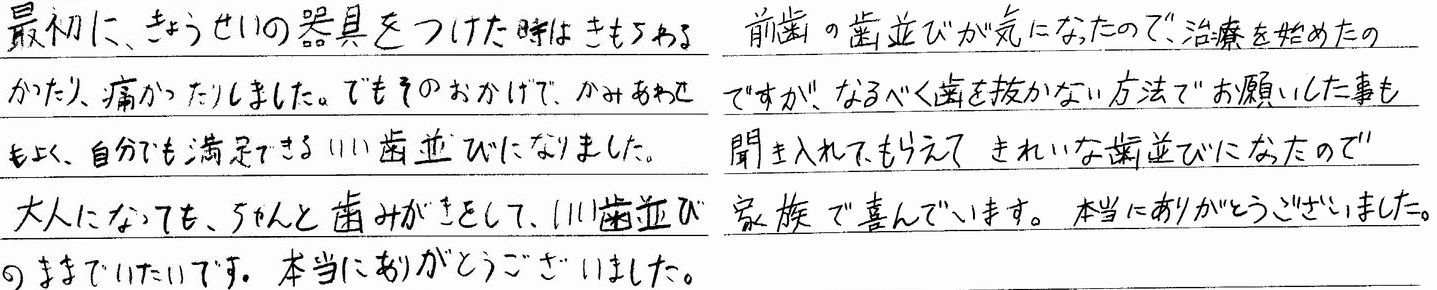 最初に、きょうせいの器具をつけた時はきもちわる
かったり、痛かったりしました。でもそのおかげで、かみあわせ
もよく、自分でも満足できるいい歯並びになりました。
大人になっても、ちゃんと歯みがきをして、いい歯並び
のままでいたいです。本当にありがとうございました。
前歯の歯並びが気になったので、治療を始めたの
ですが、なるべく歯を抜かない方法でお願いした事も
聞き入れて、もらえてきれいな歯並びになったので
家族で喜んでいます。本当にありがとうございました。